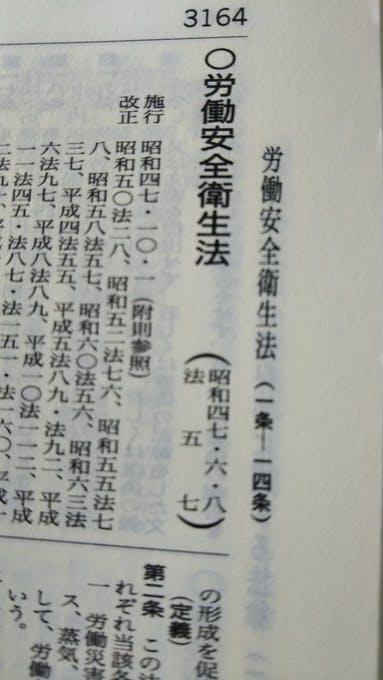 3164
労働安全衛生法(一条―一四条)
○労働安全衛生法
(昭和四七・六・八
法五七)
施行 昭和四七・一〇・一(附則参照)
改正 昭和五〇法二八、昭和五二法七六、昭和五五法七
八、昭和五八法五七、昭和六〇法五六、昭和六三法
三七、平成四法五五、平成五法八九・法九二、平成
六法九七、平成八法八九、平成一〇法一一二、平成
一一法四五・法八七・法一五一・法一六〇、平成一
の形成を促
(定義)
第二条 この法
れぞれ当該各
一 労働災害
ス、蒸気、
して、労働
いう。